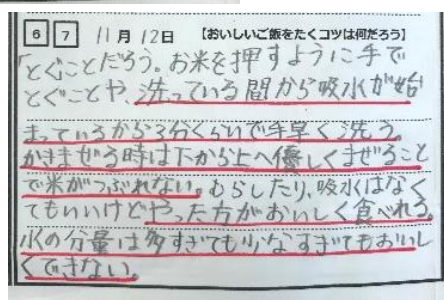 6 7 11月12日 【おいしいご飯をたくコツは何だろう】
「とぐことだろう。お米を押すように手で
とぐことや、洗っている間から吸水が始
まっているから3分くらいで手早く洗う。
かきまぜる時は下から上へ優しくまぜること
で米がつぶれない。むらしたり、吸水はなく
てもいいけどやった方がおいしく食べれる。
水の分量は多すぎても少なすぎてもおいし
くできない。